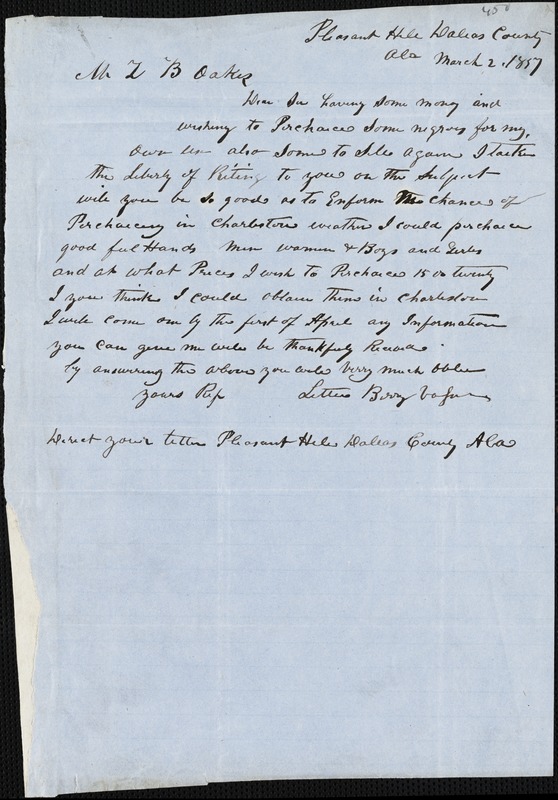 450
Pleasant Hill Dalas County
Ala March 2. 1857
Mr Z B Oakes
Dear Sir having some mony and
wishing to Perchaice Some negroes for my,
own use also Some to Sile again I taeke
the Liberty of Riting to you on the Subject
will you be So good as to Enform the Chance of
Perchaceing in Charleston weather I could perchaice
good full Hands Men women & Boys and Girles
and at what Prices I wish to Perchaice 15 or twenty
I you think I could obtain them in Charleston
I will come on by the first of April any Information
you can give me will be thankfuly Receivd
by answering the above you will verry much oblige
yours Resp Berry
Direct your letter Pleasant Hill Dalas County Ala